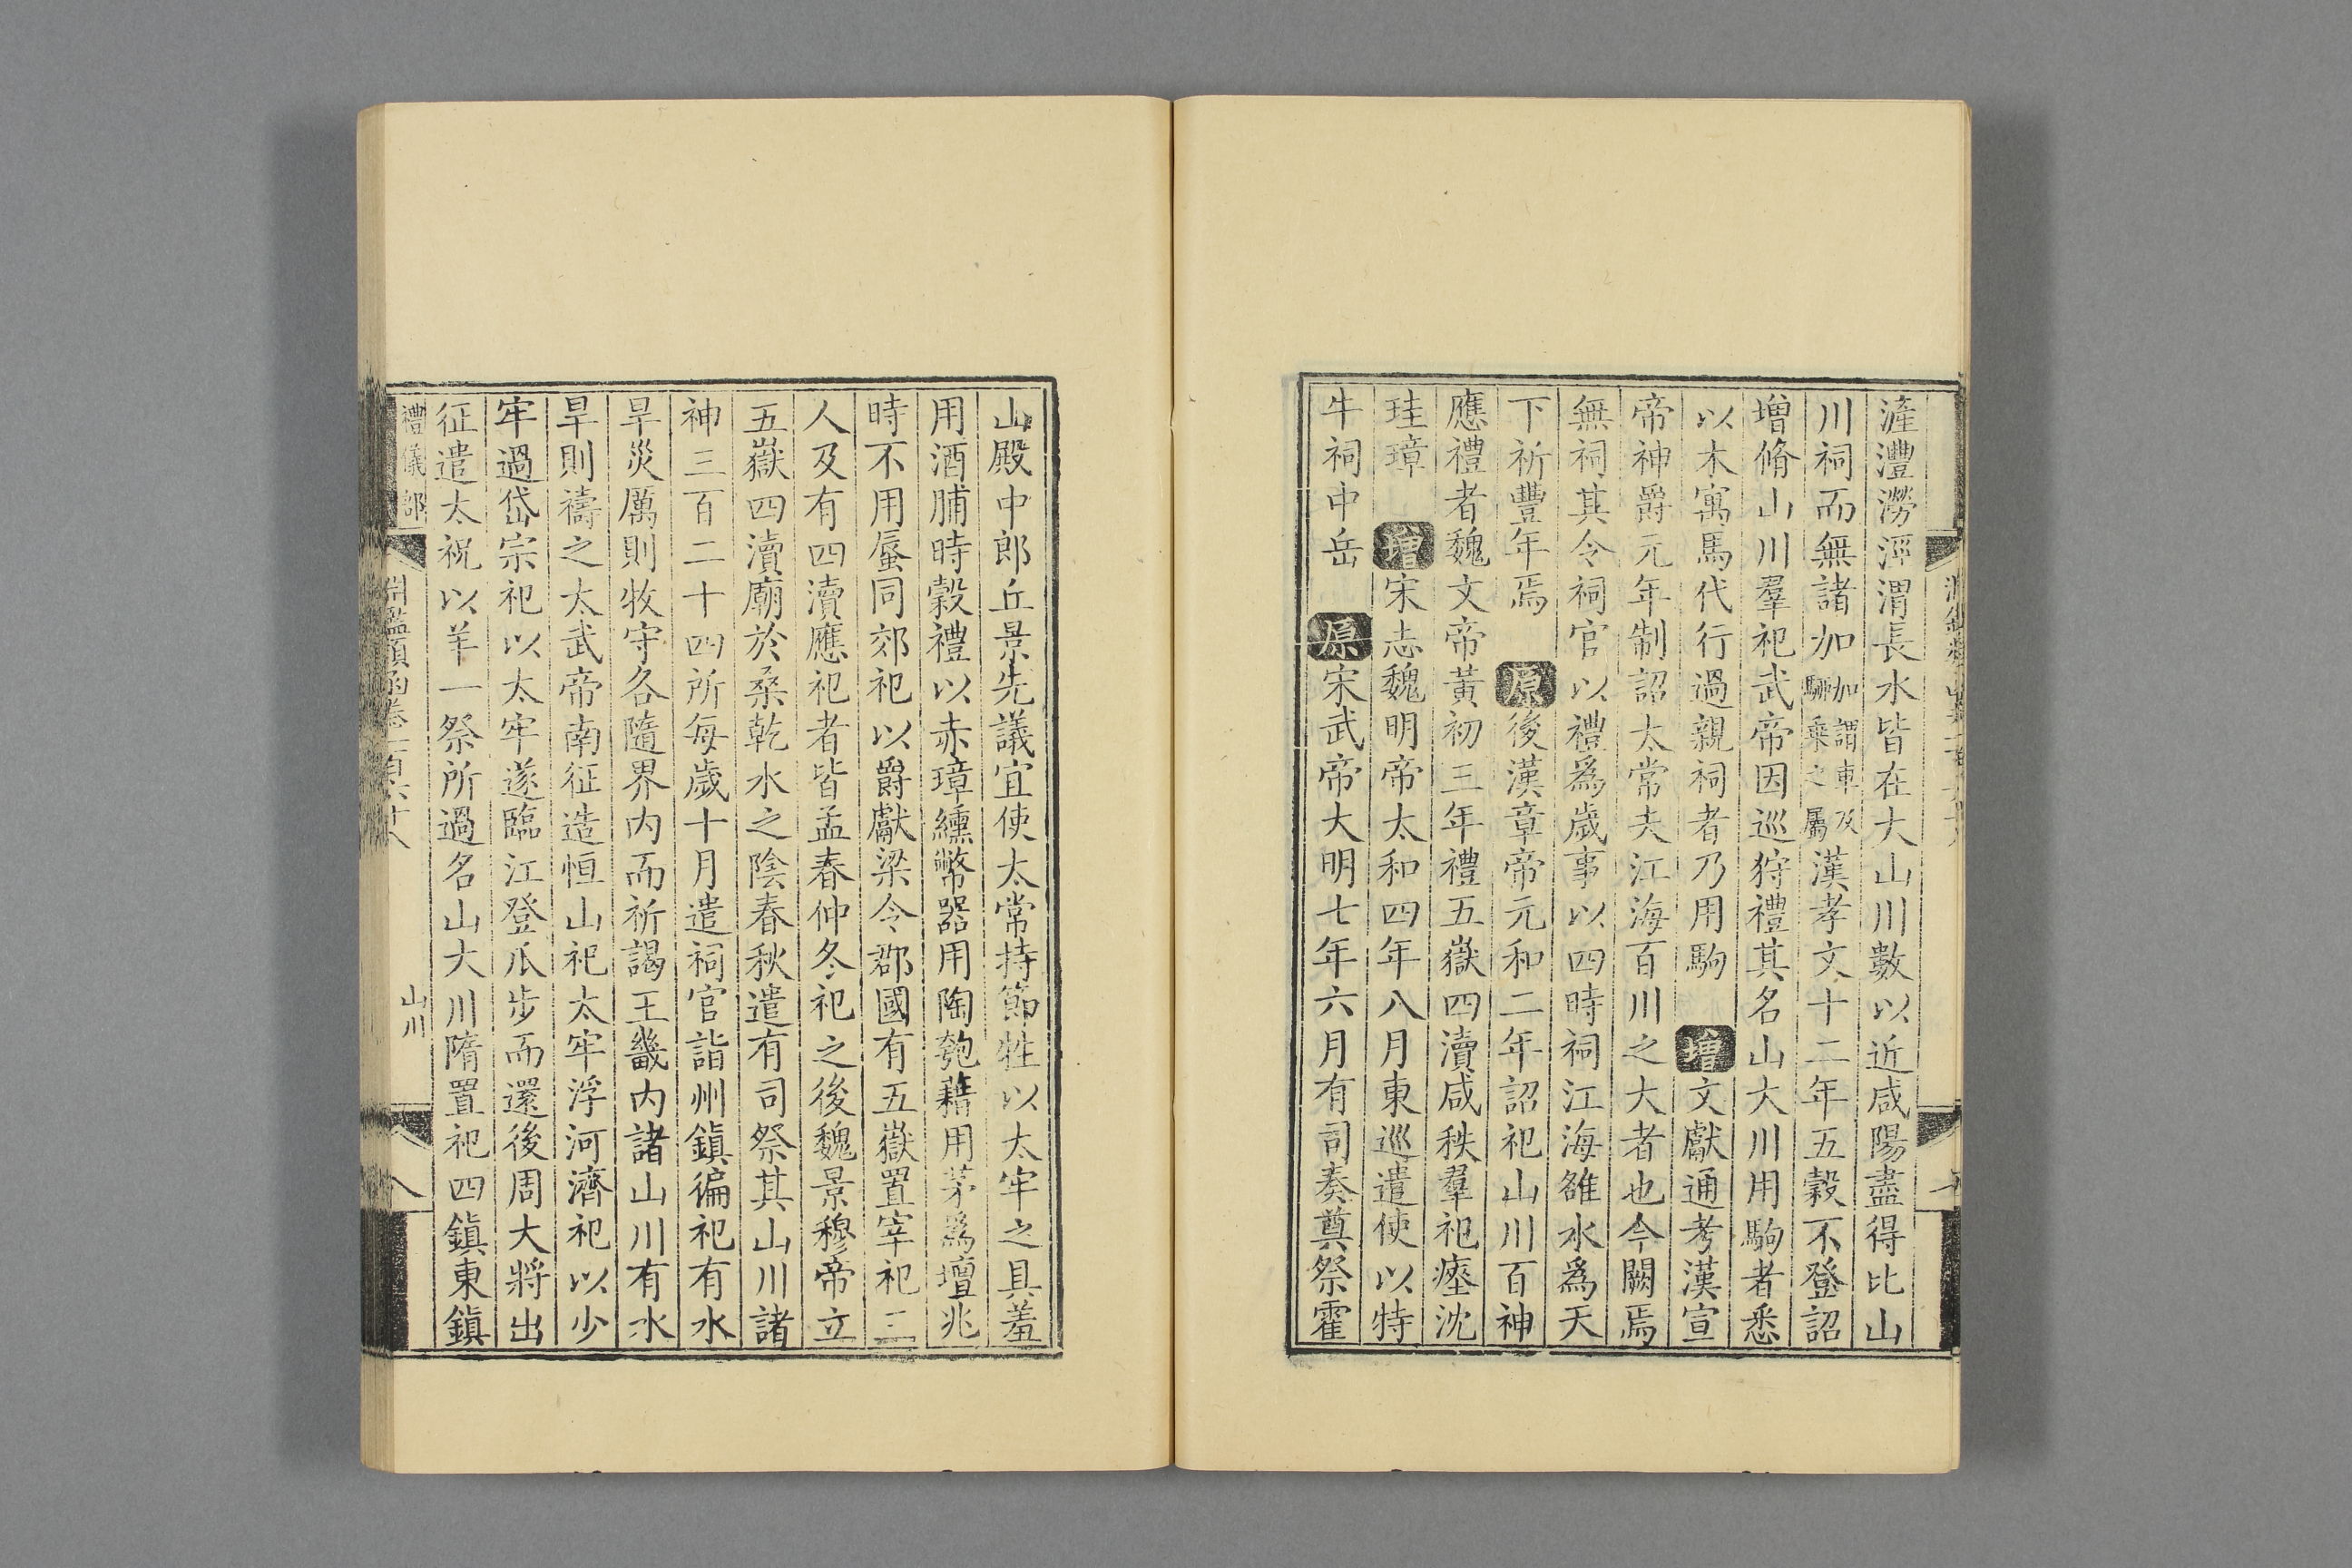 滻灃澇涇渭長水皆在大山川數以近咸陽盡得比山
川祠而無諸加加謂車及騮乗之屬漢孝文十二年五穀不登詔
增脩山川羣祀武帝因巡狩禮其名山大川用駒者悉
以木寓馬代行過親祠者乃用駒 增文獻通考漢宣
帝神爵元年制詔太常夫江海百川之大者也今闕焉
無祠其令祠官以禮為歲事以四時祠江海雒水為天
下祈豐年焉 原後漢章帝元和二年詔祀山川百神
應禮者魏文帝黃初三年禮五嶽四瀆咸秩羣祀瘞沈
珪璋 增宋志魏明帝太和四年八月東巡遣使以特
牛祠中岳 原宋武帝大明七年六月有司奏奠祭霍
山殿中郎丘景先議宜使太常持節牲以太牢之具羞
用酒脯時穀禮以赤璋纁幣器用陶匏藉用茅為壇兆
時不用蜃同郊祀以爵獻梁令郡國有五嶽置宰祀三
人及有四瀆應祀者皆孟春仲冬祀之後魏景穆帝立
五嶽四瀆廟於桑乾水之陰春秋遣有司祭其山川諸
神三百二十四所每歲十月遣祠官詣州鎮徧祀有水
旱災厲則牧守各隨界内而祈謁王畿内諸山川有水
旱則禱之太武帝南征造恒山祀太牢浮河濟祀以少
牢過岱宗祀以太牢遂臨江登瓜步而還後周大將出
征遣太祝以羊一祭所過名山大川隋置祀四鎮東鎮
禮儀部 淵鑑類函卷一百六十八 山川 八